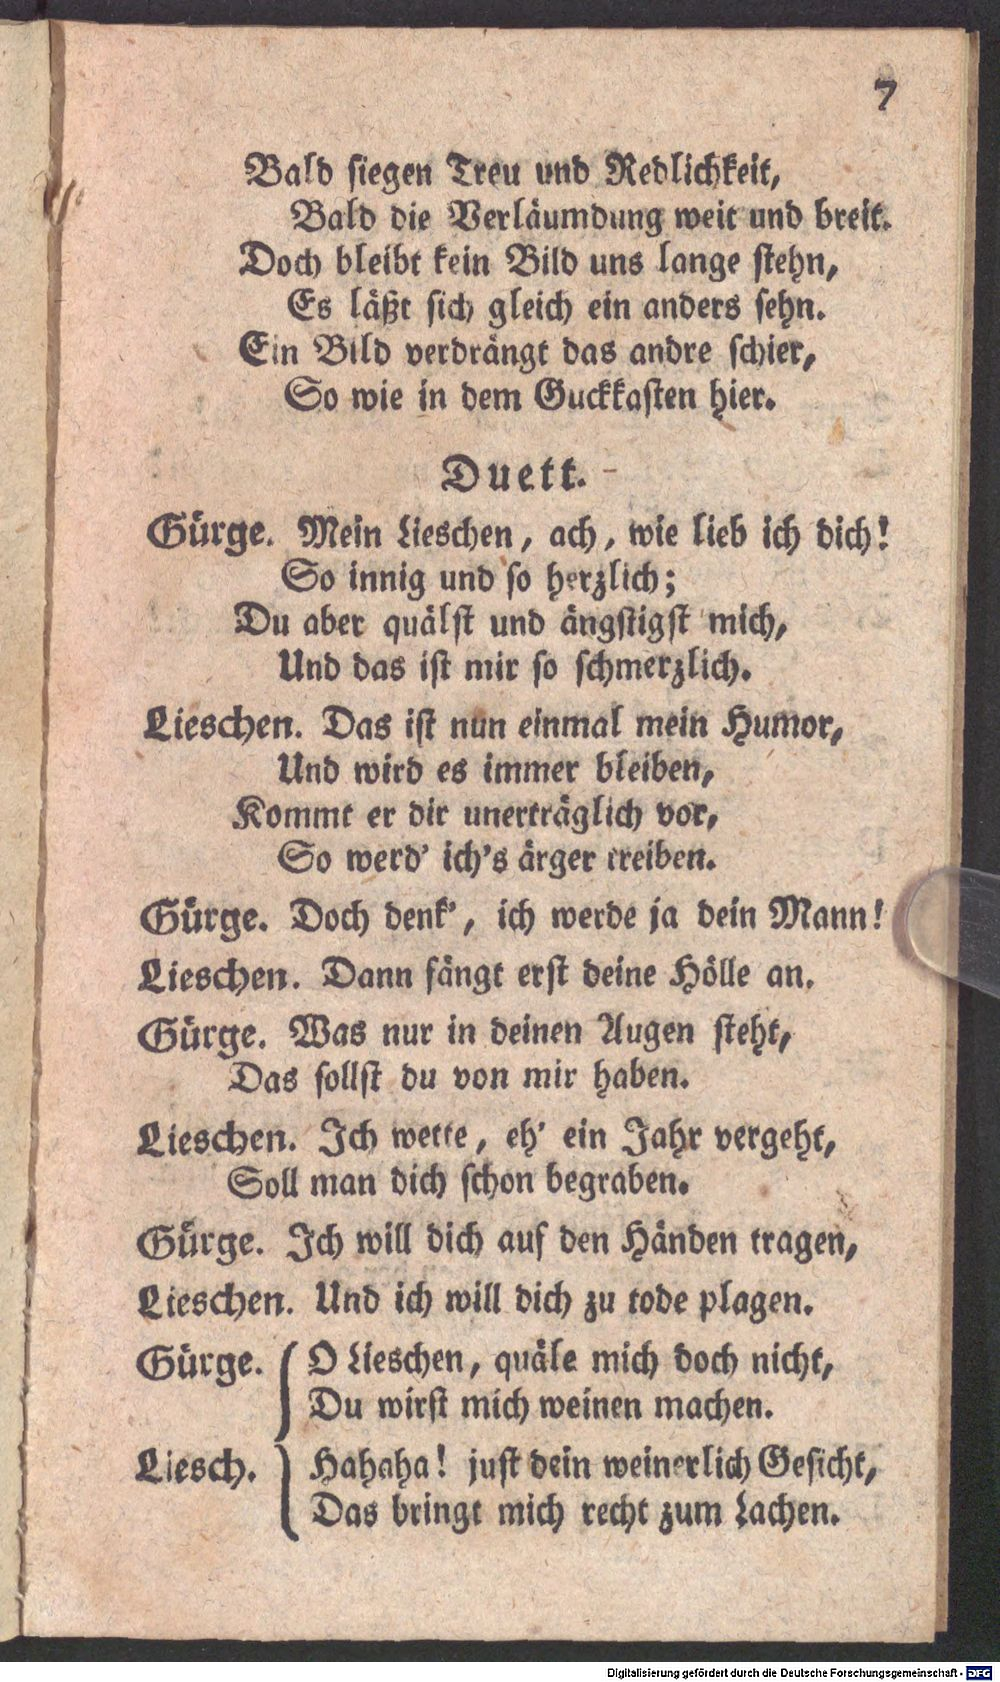 7
Bald siegen Treu und Redlichkeit,
Bald die Verläumdung weit und breit.
Doch bleibt kein Bild uns lange stehn,
Es läßt sich gleich ein anders sehn.
Ein Bild verdrängt das andre schier,
So wie in dem Guckkasten hier.
Duett.
Gürge. Mein Lieschen, ach, wie lieb ich dich!
So innig und so herzlich;
Du aber quälst und ängstigst mich,
Und das ist mir so schmerzlich.
Lieschen. Das ist nun einmal mein Humor,
Und wird es immer bleiben,
Kommt er dir unerträglich vor,
So werd' ich's ärger treiben.
Gürge. Doch denk', ich werde ja dein Mann!
Lieschen. Dann fängt erst deine Hölle an.
Gürge. Was nur in deinen Augen steht,
Das sollst du von mir haben.
Lieschen. Ich wette, eh' ein Jahr vergeht,
Soll man dich schon begraben.
Gürge. Ich will dich auf den Händen tragen,
Lieschen. Und ich will dich zu tode plagen.
Gürge. O Lieschen, quäle mich doch nicht,
Du wirst mich weinen machen.
Liesch. Hahaha! just dein weinerlich Gesicht,
Das bringt mich recht zum Lachen.
Digitalisierung gefördert durch die Deutsche Forschungsgemeinschaft - DFG